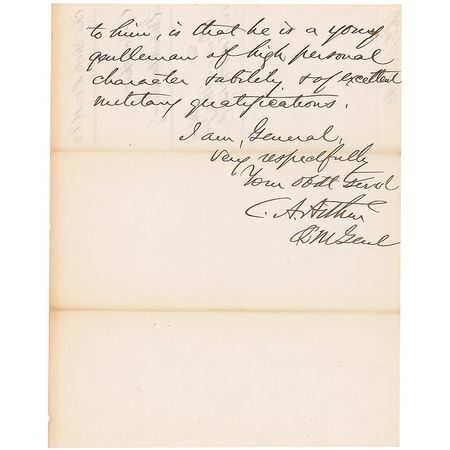 to him, is that he is a young
gentleman of high personal
character & ability, & of excellent
military qualifications.
I am, General,
Very respectfully
Your obdt Servt
C. A. Arthur
Q M Genl